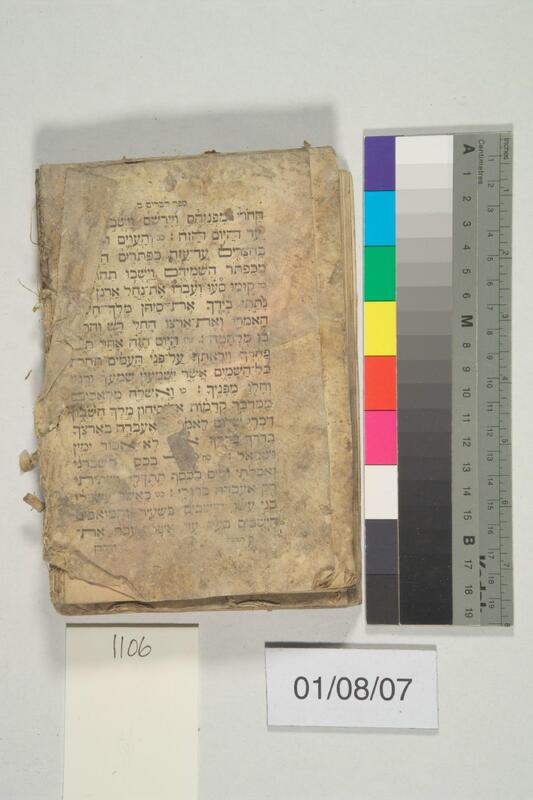 ספר דברים ב
החרי מפניהם ויירשם וישב
עד היום הזה׃ והעוים
בחצרים עד־עזה כפתרים
מכפתר השמידם וישבו תח
קומו סעו ועברו את־נחל ארנן
נתתי בידך את־סיחן מלך־ח
האמרי ואת־ארצו החל רש והת
בו מלחמה׃ היום הזה אחל תת
פחדך ויראתך על־פני העמים תחת
כל־השמים אשר ישמעון שמעך ורגזו
וחלו מפניך׃ ואשלח מלאכים
ממדבר קדמות אל־סיחון מלך חשבון
דברי שלום לאמר אעברה בארצך
בדרך בדרך לא אסור ימין
ושמאול׃ בכסף תשברני
ואכלתי ומים בכסף תתן־לי ושתיתי
רק אעברה ברגלי׃ כאשר עשו־לי
בני עשו הישבים בשעיר והמואבים
הישבים בער עד אשר־אעבר את־
1106
01/08/07
A
Centimetres
Inches
1 2 3 4 5 6 7
M
8 9 10 11 12 13 14 15
B
17 18 19
Kodak